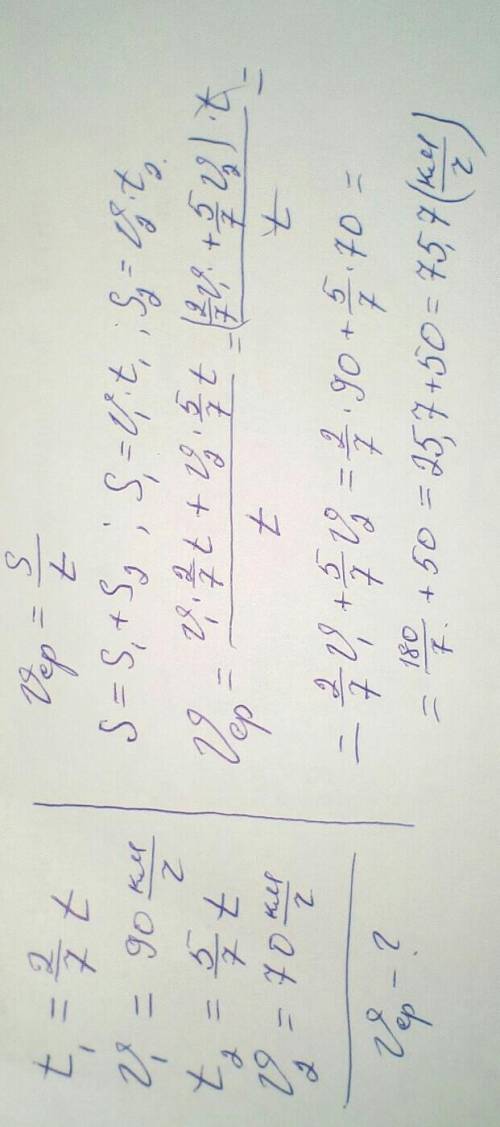 t₁ = 2/7 t
υ₁ = 90 км/г
t₂ = 5/7 t
υ₂ = 70 км/г
υср - ?
υср = S/t
S = S₁ + S₂ ; S₁ = υ₁·t₁ ; S₂ = υ₂·t₂
υср = (υ₁·2/7 t + υ₂·5/7 t)/t = ((2/7 υ₁ + 5/7 υ₂)·t)/t =
= 2/7 υ₁ + 5/7 υ₂ = 2/7·90 + 5/7·70 =
= 180/7 + 50 = 25,7 + 50 = 75,7 (км/г)